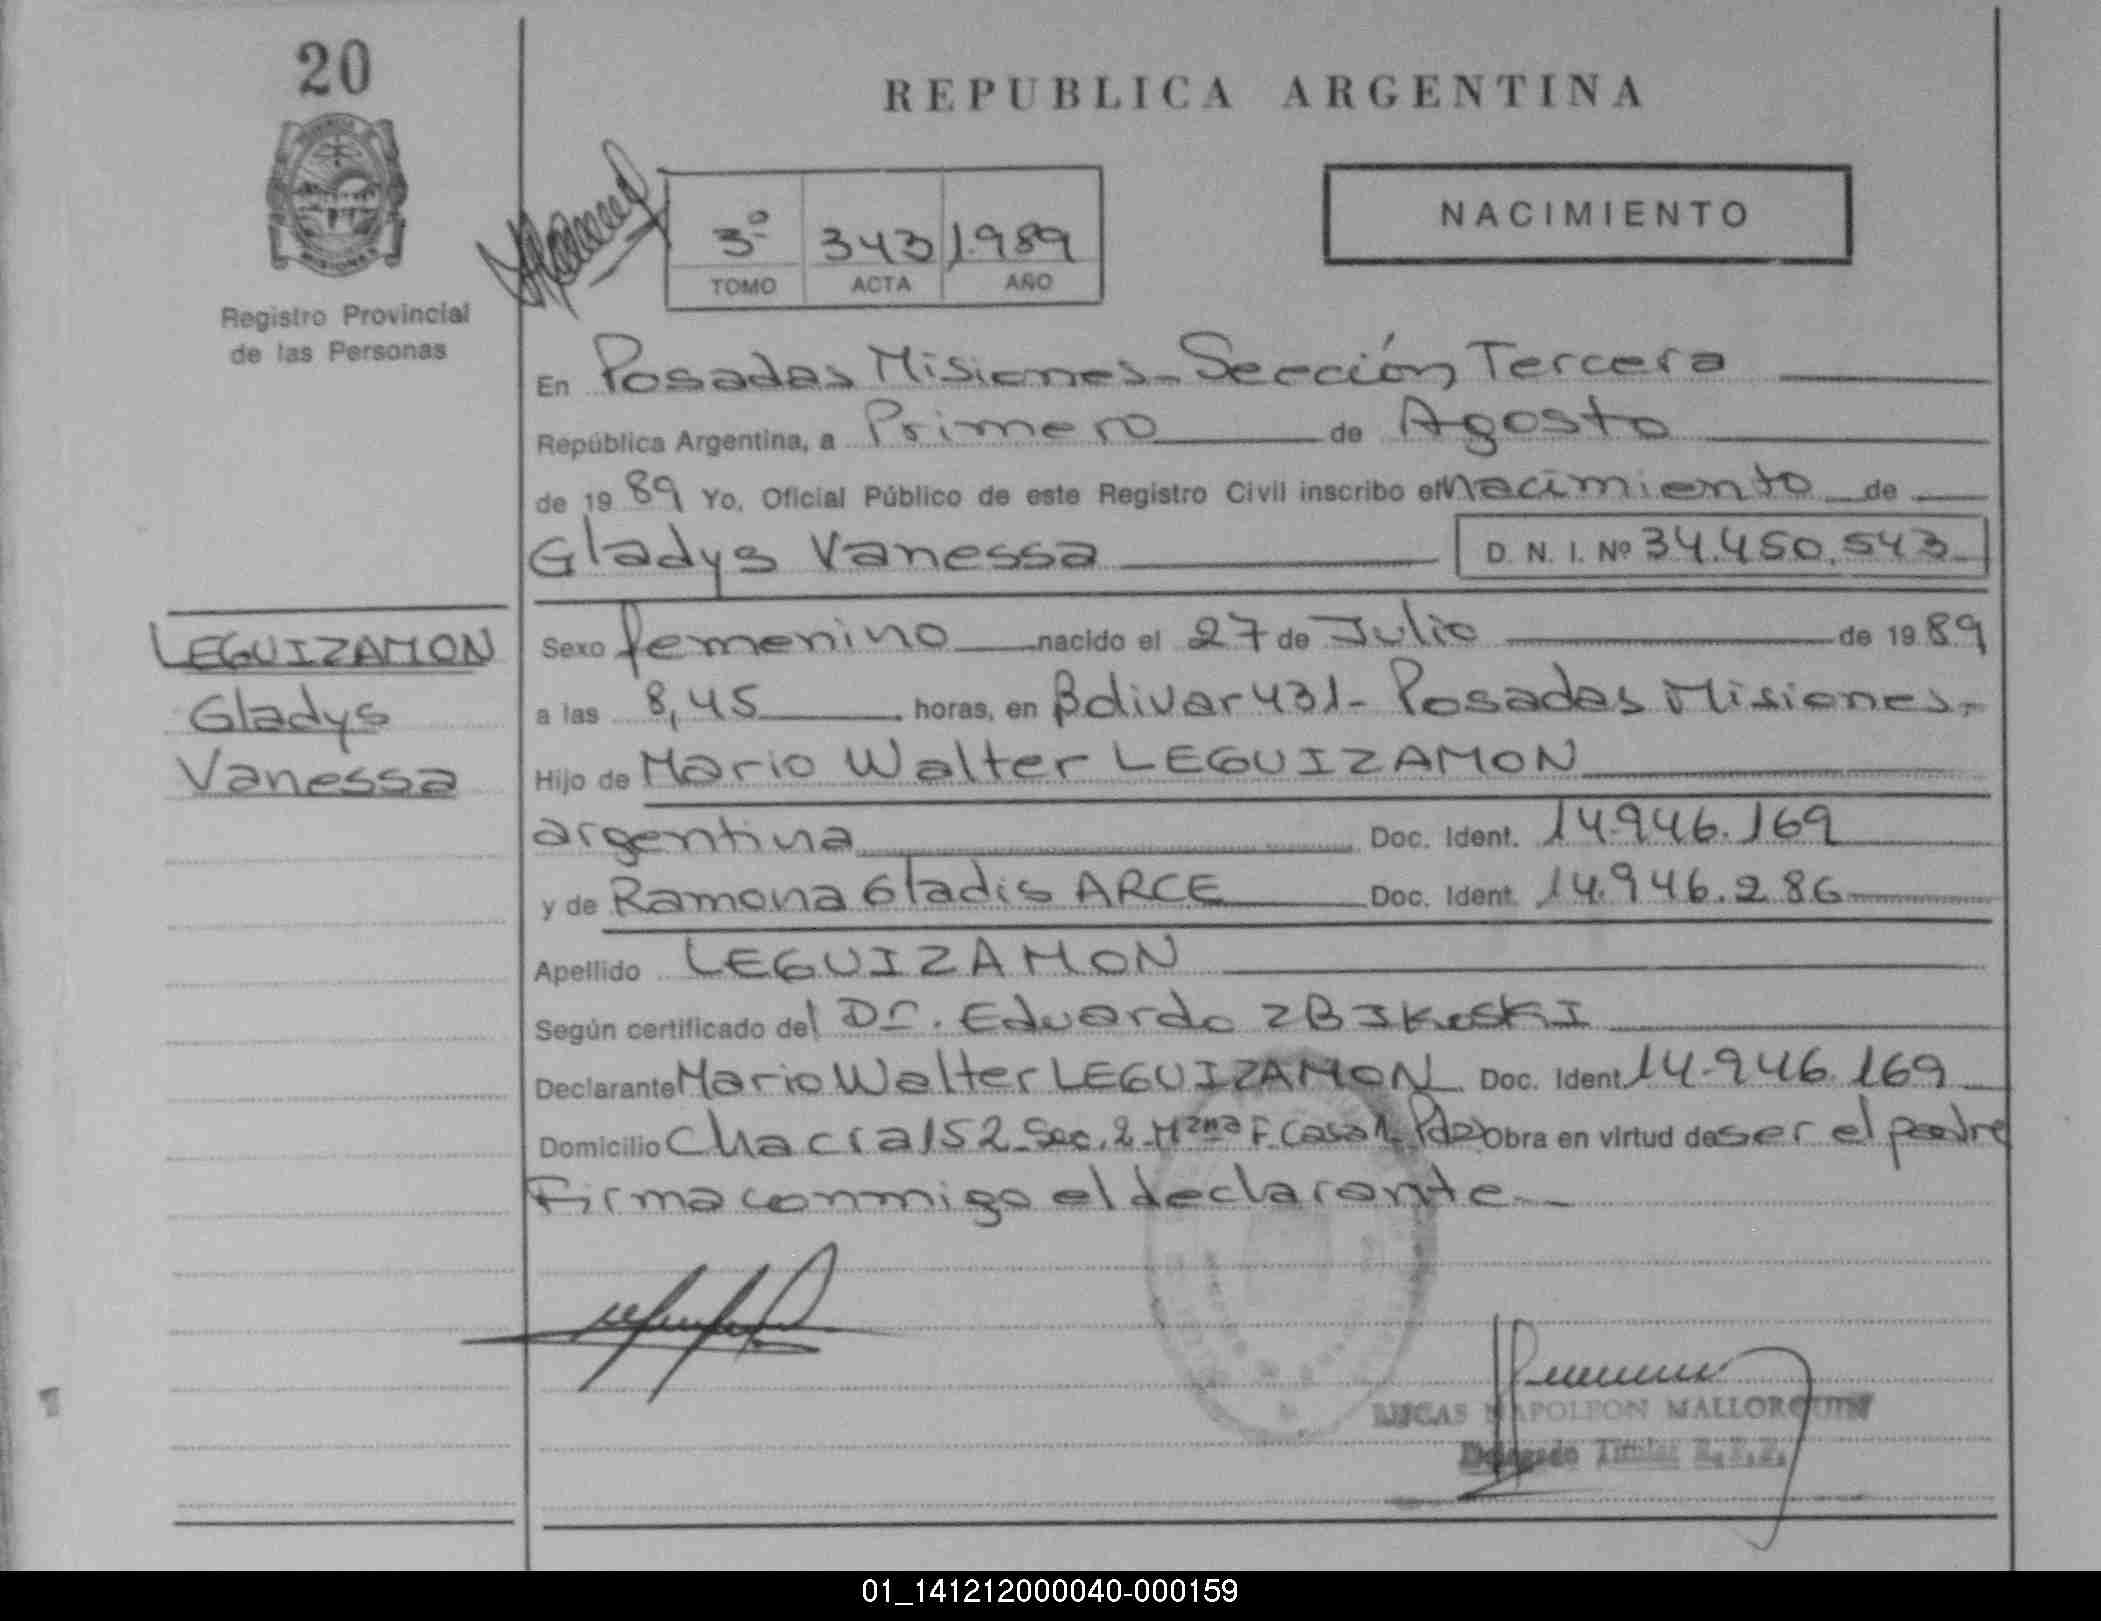 20
REPUBLICA ARGENTINA
3º 343 1.989
TOMO ACTA AÑO
NACIMIENTO
Registro Provincial
de las Personas
En Posadas Misiones - Sección Tercera
República Argentina, a Primero de Agosto
de 19 89 Yo, Oficial Público de este Registro Civil inscribo el nacimiento de
Gladys Vanessa D. N. I. Nº 34.450.543
LEGUIZAMON
Gladys
Vanessa
Sexo femenino nacido el 27 de Julio de 19 89
a las 8,45 horas, en Bolivar 431 - Posadas Misiones.
Hijo de Mario Walter LEGUIZAMON
argentina Doc. Ident. 14.946.169
y de Ramona Gladis ARCE Doc. Ident. 14.946.286
Apellido LEGUIZAMON
Según certificado del Dr. Eduardo
Declarante Mario Walter LEGUIZAMON Doc. Ident. 14.946.169
Domicilio Chacra 152 Sec. 2 Mzna F Casa Obra en virtud de ser el padre
Firma conmigo el declarante
LUCAS NAPOLEON MALLORQUIN
Delegado Titular
01_141212000040-000159